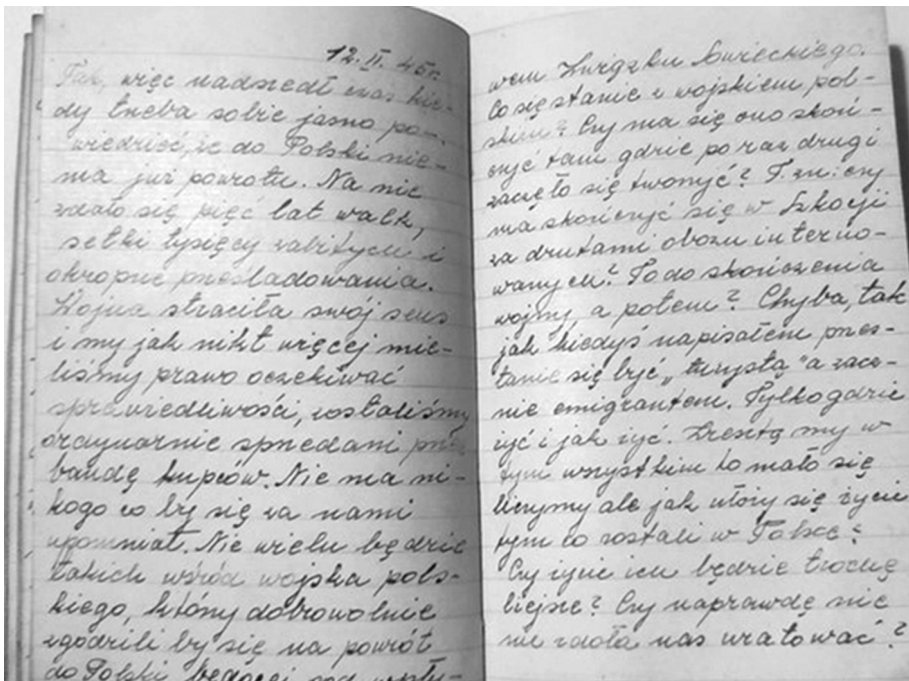 12. II. 45r.
Tak, więc nadszedł czas kie-
dy trzeba sobie jasno po-
wiedzieć, że do Polski nie-
ma już powrotu. Na nic
zdało się pięć lat walk,
setki tysięcy zabitych i
okropne prześladowania.
Wojna straciła swój sens
i my jak nikt więcej mie-
liśmy prawo oczekiwać
sprawiedliwości, zostaliśmy
ordynarnie sprzedani przez
bandę kupców. Nie ma ni-
kogo co by się za nami
upomniał. Nie wielu będzie
takich wśród wojska pols-
kiego, którzy dobrowolnie
zgodzili by się na powrót
do Polski będącej pod wpły-
wem Związku Sowieckiego.
Co się stanie z wojskiem pol-
skiem? Czy ma się ono skoń-
czyć tam gdzie po raz drugi
zaczęło się tworzyć? T. zn: czy
ma skończyć się w Szkocji
za drutami obozu interno-
wanych? To do skończenia
wojny, a potem? Chyba, tak
jak kiedyś napisałem przes-
tanie się być „turystą" a zacz-
nie emigrantem. Tylko gdzie
żyć i jak żyć. Zresztą my w
tym wszystkim to mało się
liczymy ale jak ułoży się życie
tym co zostali w Polsce?
Czy życie ich będzie trochę
lżejsze? Czy naprawdę nic
nie zdoła nas uratować?